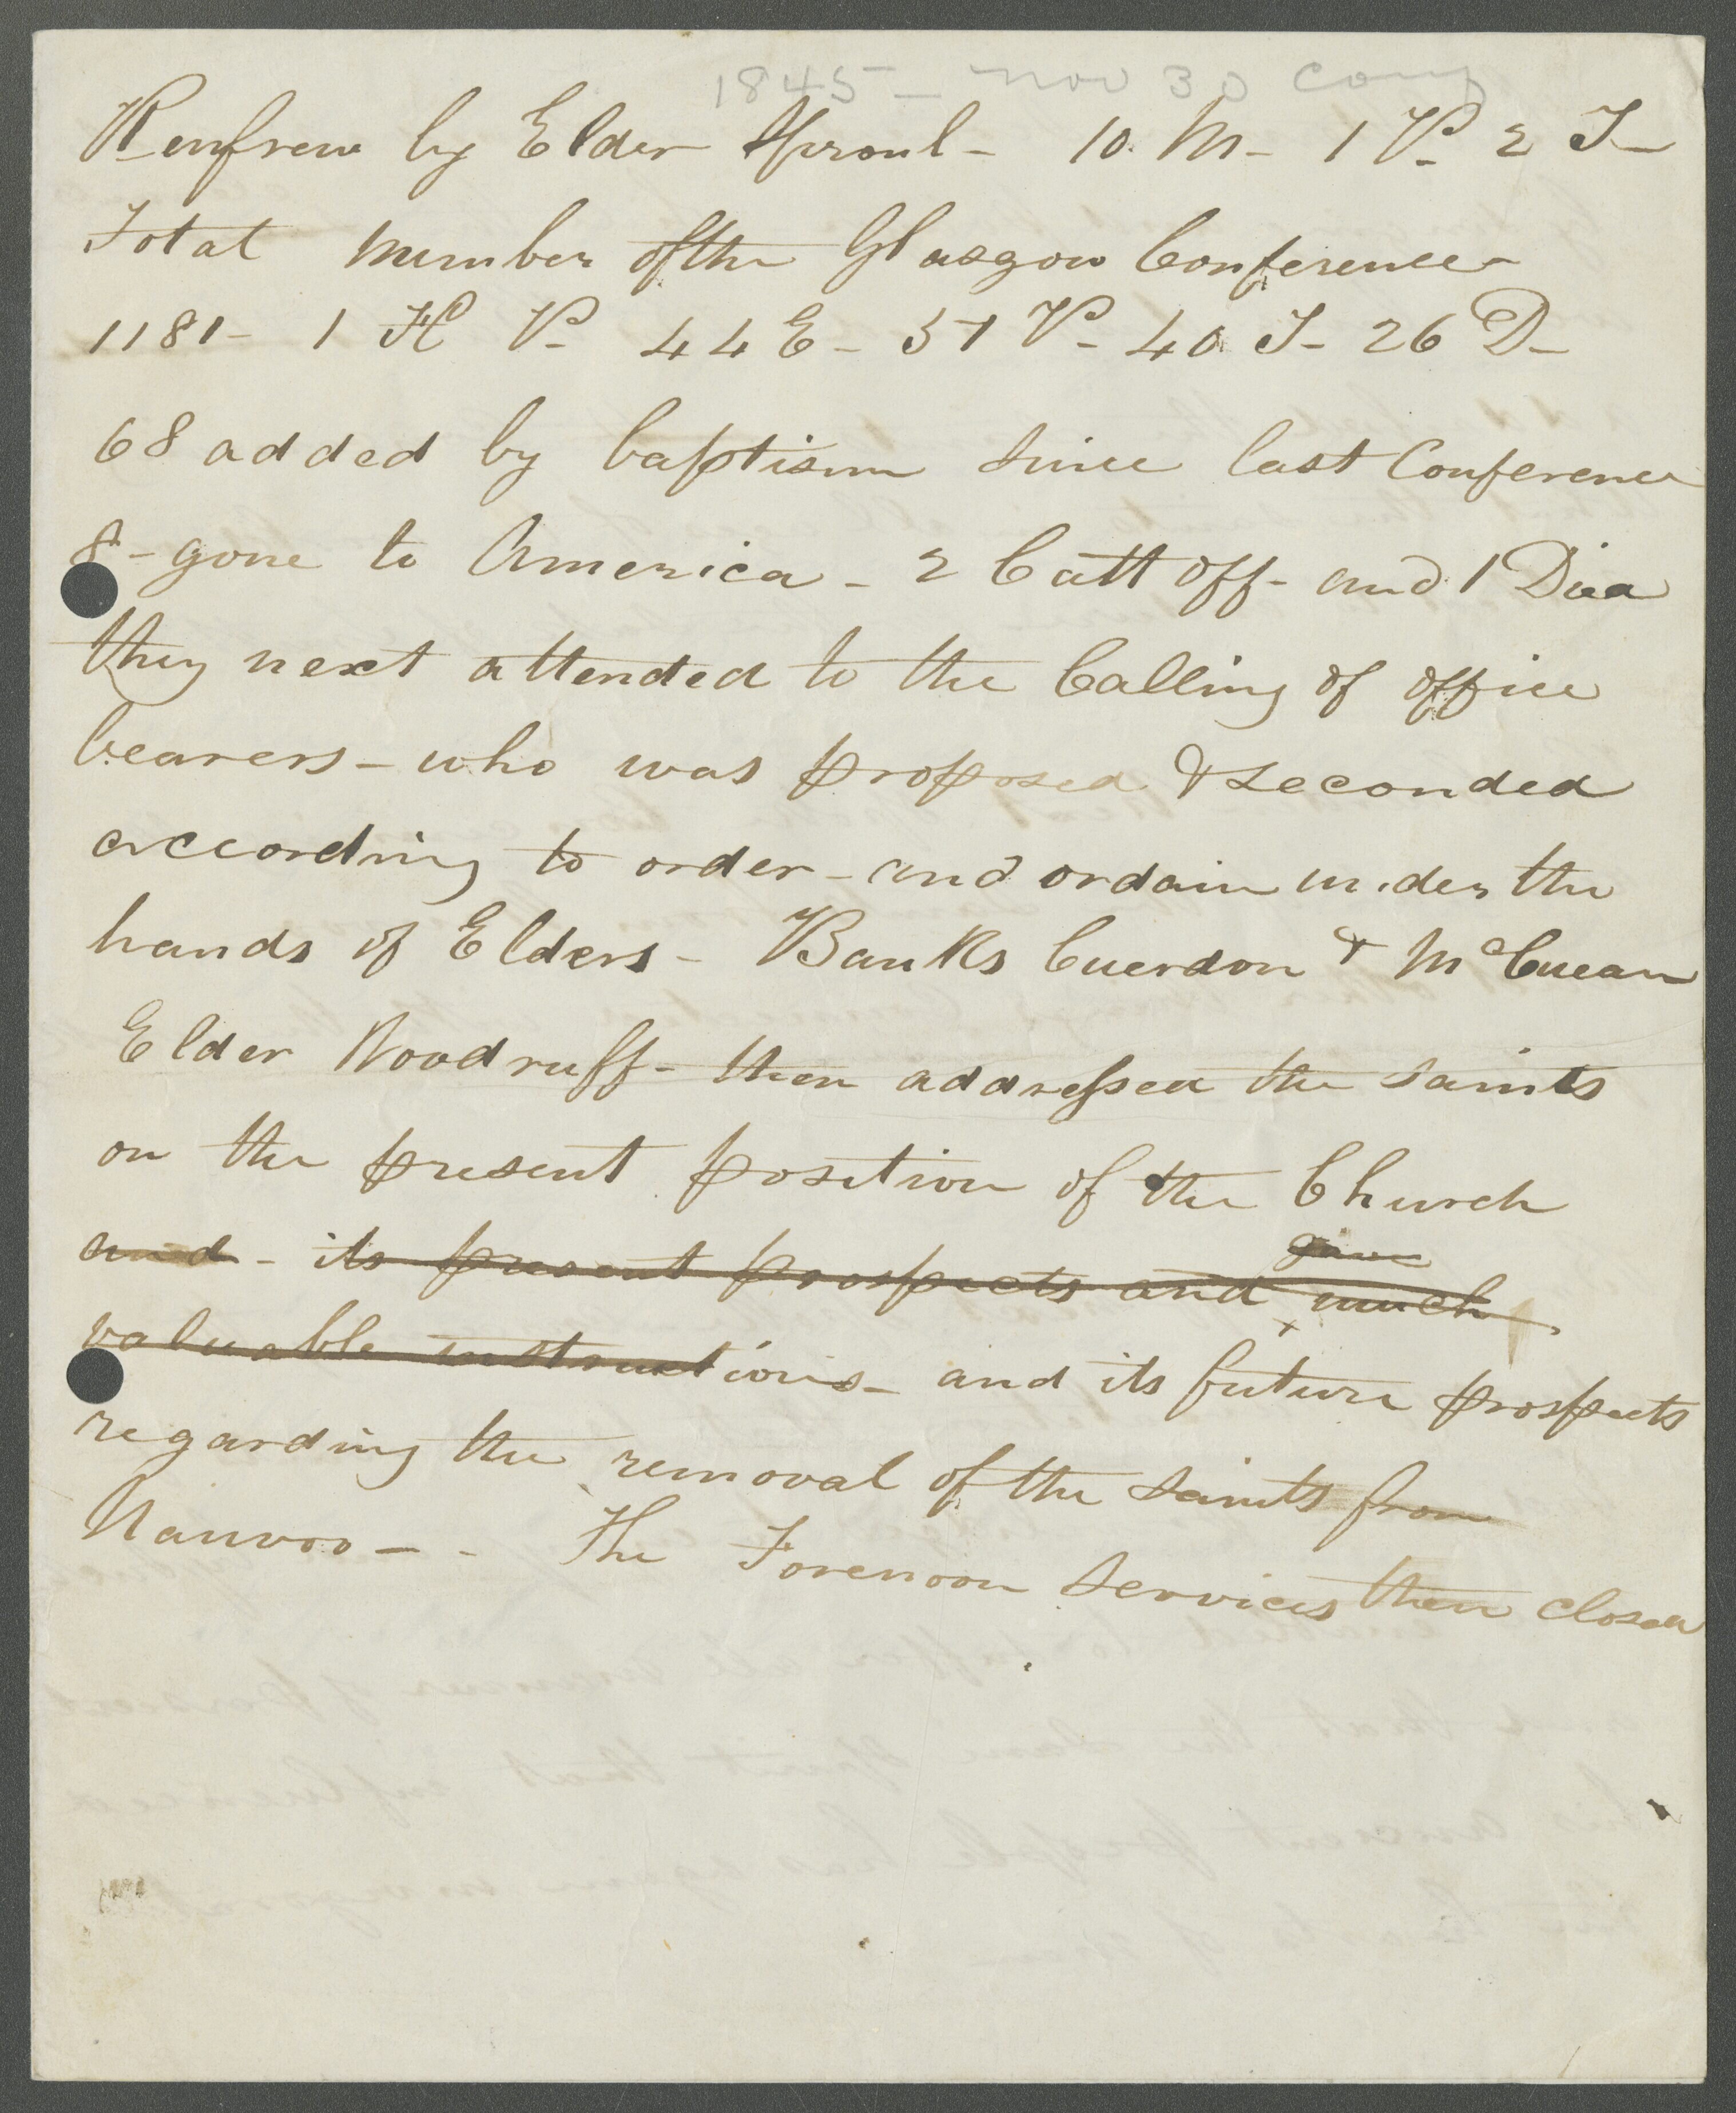 1845 - Nov 30 conf
Renfrew by Elder Sproul - 10 M - 1 P - 2 T -
Total Number of the Glasgow Conference
1181 - 1 H P - 44 E - 57 P - 40 T - 26 D -
68 added by baptism since last Conference
8 - gone to America - 2 Catt off - and 1 Died
they next attended to the Calling of office
bearers - who was proposed & seconded
according to order - and ordain under the
hands of Elders - Banks Cuerdon & McCuean
Elder Woodruff - then addressed the saints
on the present position of the Church
gave
and - its present prospects and much
valuable instructions - and its future prospects
regarding the removal of the saints from
Nauvoo - - The Forenoon services then closed